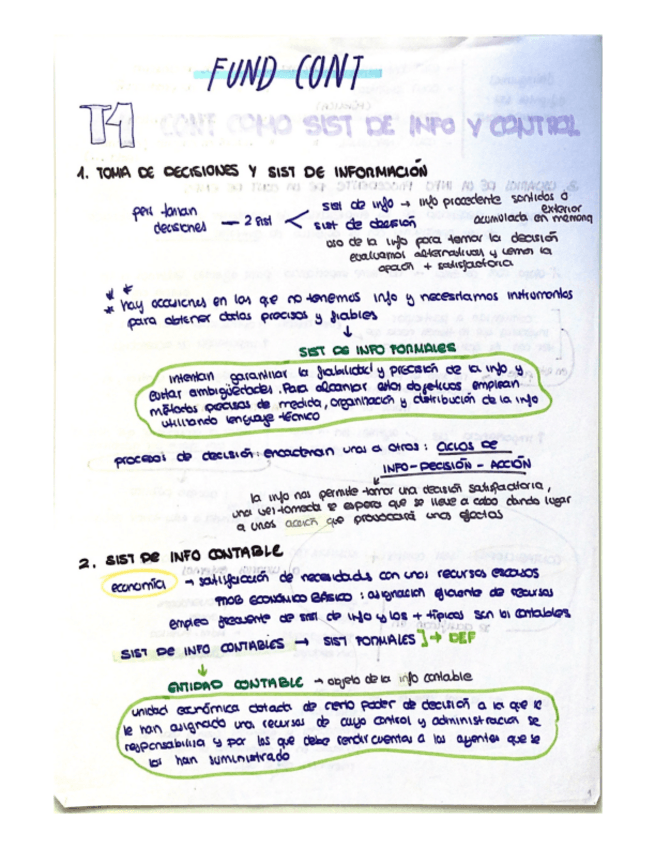 FUND CONT
T1 CONT COMO SIST DE INFO Y CONTROL
1. TOMA DE DECISIONES Y SIST DE INFORMACIÓN
pers toman decisiones — 2 sist
sist de info → info procedente sentidos o exterior
acumulada en memoria
sist de decisión
uso de la info para tomar la decisión
evaluamos alternativas y
opción + satisfactoria
** hay ocasiones en las que no tenemos info y necesitamos instrumentos
para obtener datos precisos y fiables
↓
SIST DE INFO FORMALES
intentan garantizar la fiabilidad y precisión de la info y
evitar ambigüedades. Para alcanzar estos objetivos emplean
métodos precisos de medida, organización y distribución de la info
utilizando lenguaje técnico
procesos de decisión encadenan unos a otros: CICLOS DE
INFO-DECISIÓN-ACCIÓN
la info nos permite tomar una decisión satisfactoria,
una vez tomada se espera que se lleve a cabo dando lugar
a unos acción que provocará unos efectos
2. SIST DE INFO CONTABLE
economía → satisfacción de necesidades con unos recursos escasos
PROB ECONÓMICO BÁSICO: asignación eficiente de recursos
empleo frecuente de sist de info y los + típicos son los contables
SIST DE INFO CONTABLES → SIST FORMALES ] → DEF
↓
ENTIDAD CONTABLE → objeto de la info contable
unidad económica dotada de cierto poder de decisión a la que se
le han asignado unos recursos de cuyo control y administración se
responsabiliza y por los que debe rendir cuentas a los agentes que se
los han suministrado